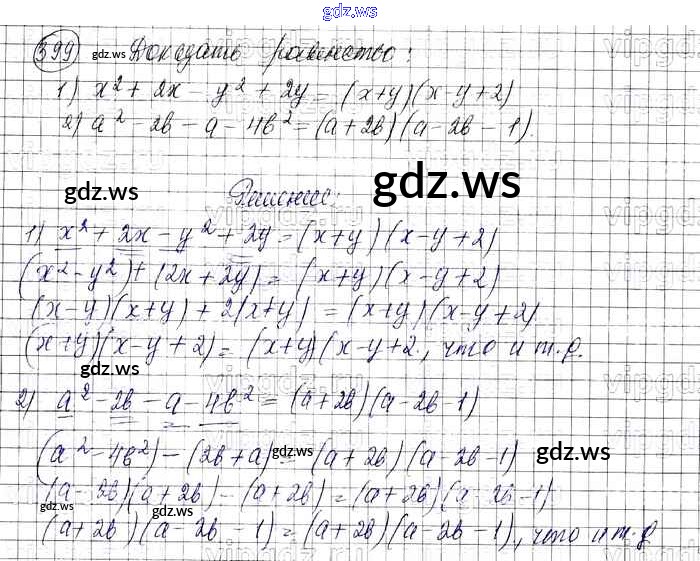 gdz.ws
399 gdz.ws Доказать равенство:
1) x² + 2x - y² + 2y = (x+y)(x-y+2)
2) a² - 2b - a - 4b² = (a+2b)(a-2b-1).
gdz.ws Решение: gdz.ws
1) x² + 2x - y² + 2y = (x+y)(x-y+2)
(x² - y²) + (2x + 2y) = (x+y)(x-y+2)
(x-y)(x+y) + 2(x+y) = (x+y)(x-y+2)
(x+y)(x-y+2) = (x+y)(x-y+2, что и т.д.
2) a² - 2b - a - 4b² = (a+2b)(a-2b-1)
gdz.ws
(a² - 4b²) - (2b + a) = (a+2b)(a-2b-1) gdz.ws
gdz.ws
(a-2b)(a+2b) - (a+2b) = (a+2b)(a-2b-1)
(a+2b)(a-2b-1) = (a+2b)(a-2b-1), что и т.д